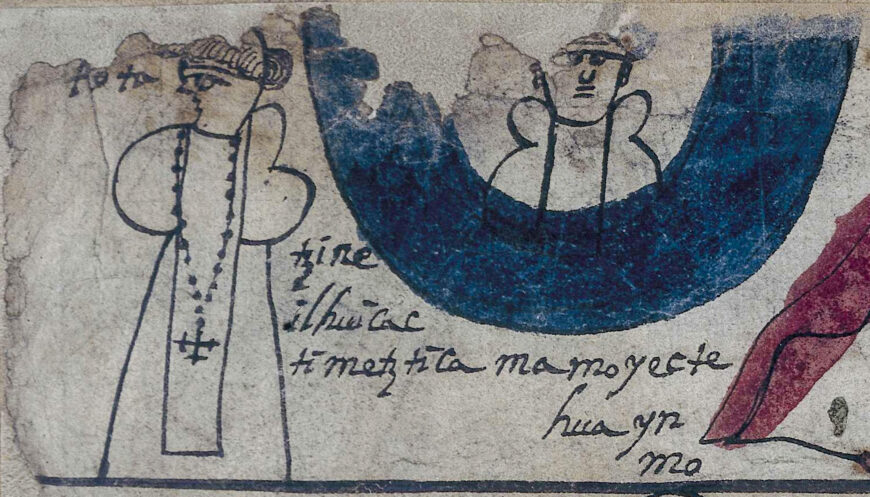 tota
tzine
ilhuicac
ti metztica mamoyecte
hua yn
mo